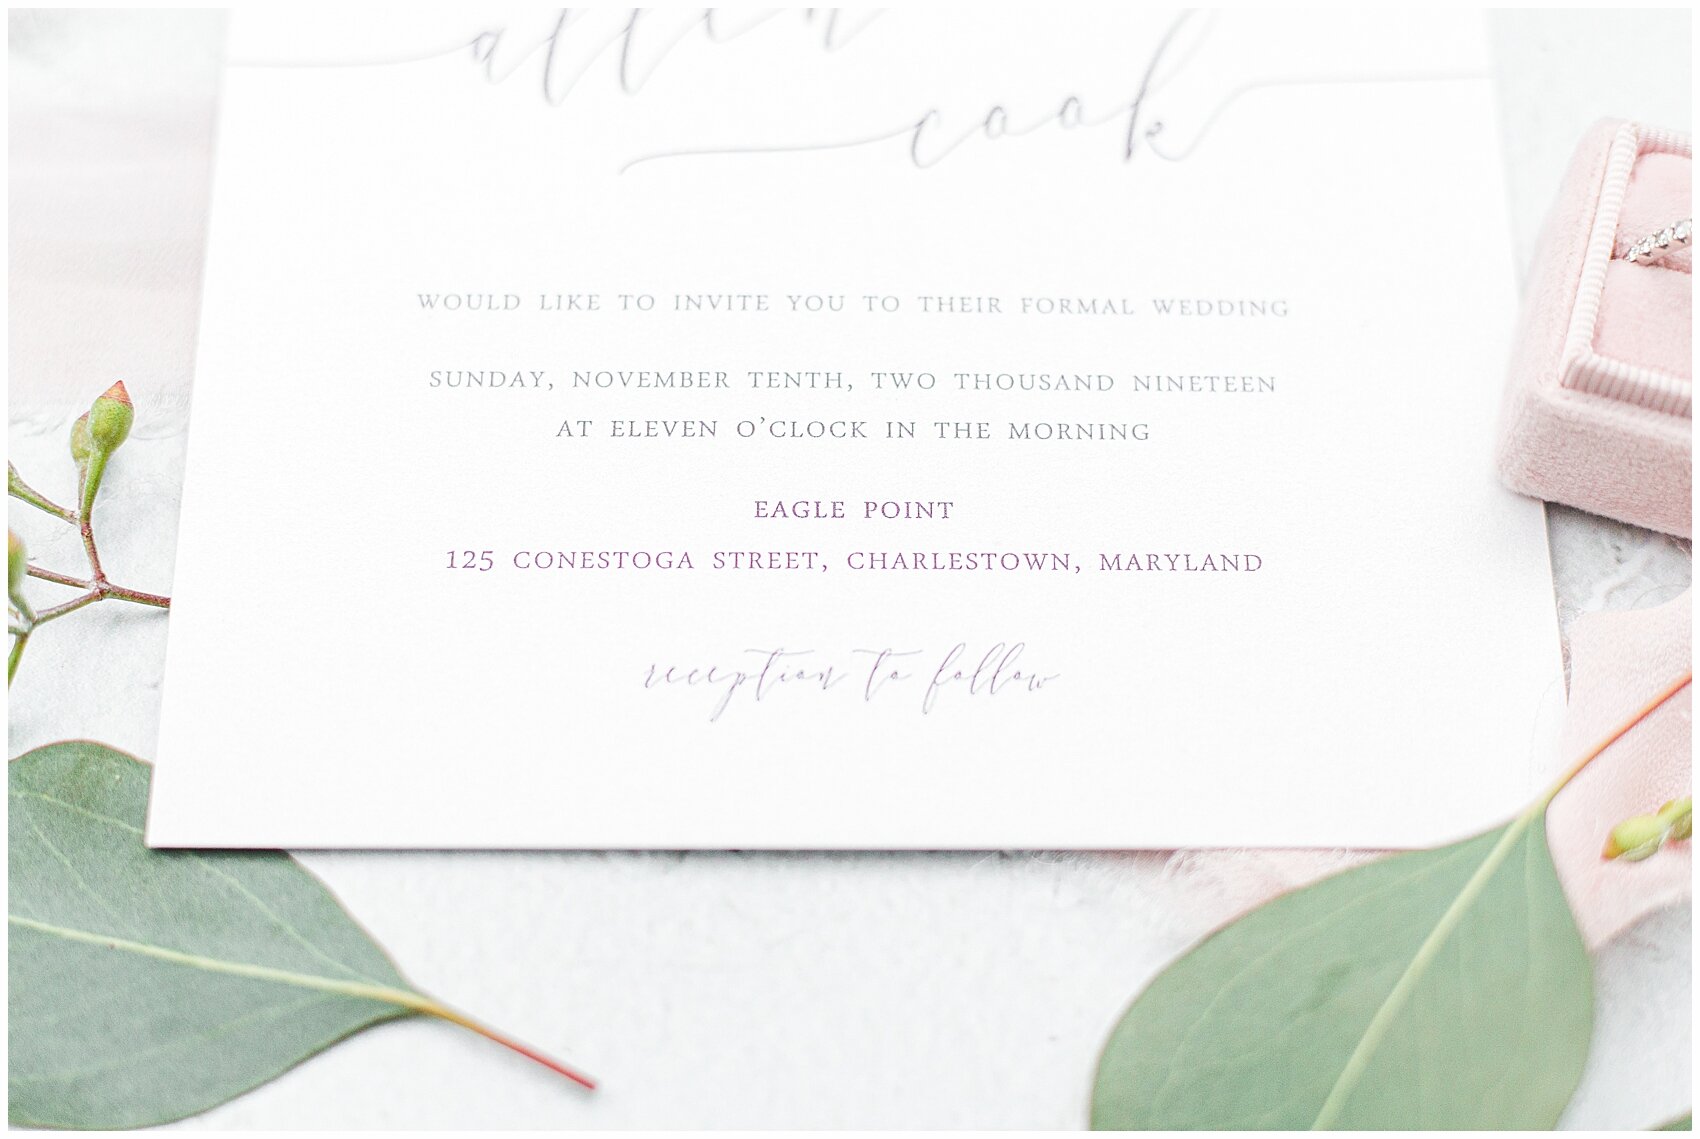 allen
cook
WOULD LIKE TO INVITE YOU TO THEIR FORMAL WEDDING
SUNDAY, NOVEMBER TENTH, TWO THOUSAND NINETEEN
AT ELEVEN O’CLOCK IN THE MORNING
EAGLE POINT
125 CONESTOGA STREET, CHARLESTOWN, MARYLAND
reception to follow